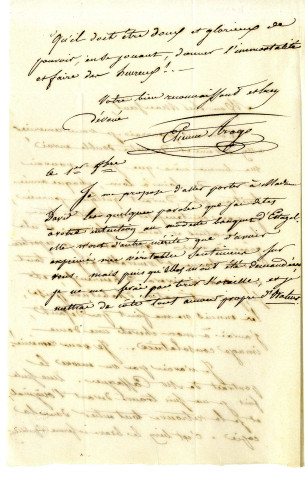 Qu'il doit être doux et glorieux de
pouvoir, en se jouant, donner l'immortalité
et faire des heureux ! —
Votre bien reconnaissant et bien
dévoué
Etienne Arago
le 1er
Je me propose d'aller porter à Madame
David les quelques paroles que j'ai dites
à votre intention au modeste banquet d'Estagel.
elle n'ont d'autre mérite que d'avoir
exprimé mes véritables sentiments sur
vous. mais puisqu'elles m'ont été demandées
je ne me ferai pas tirer l'oreille, et j'y
mettrai de côté tout amour propre d'Auteur